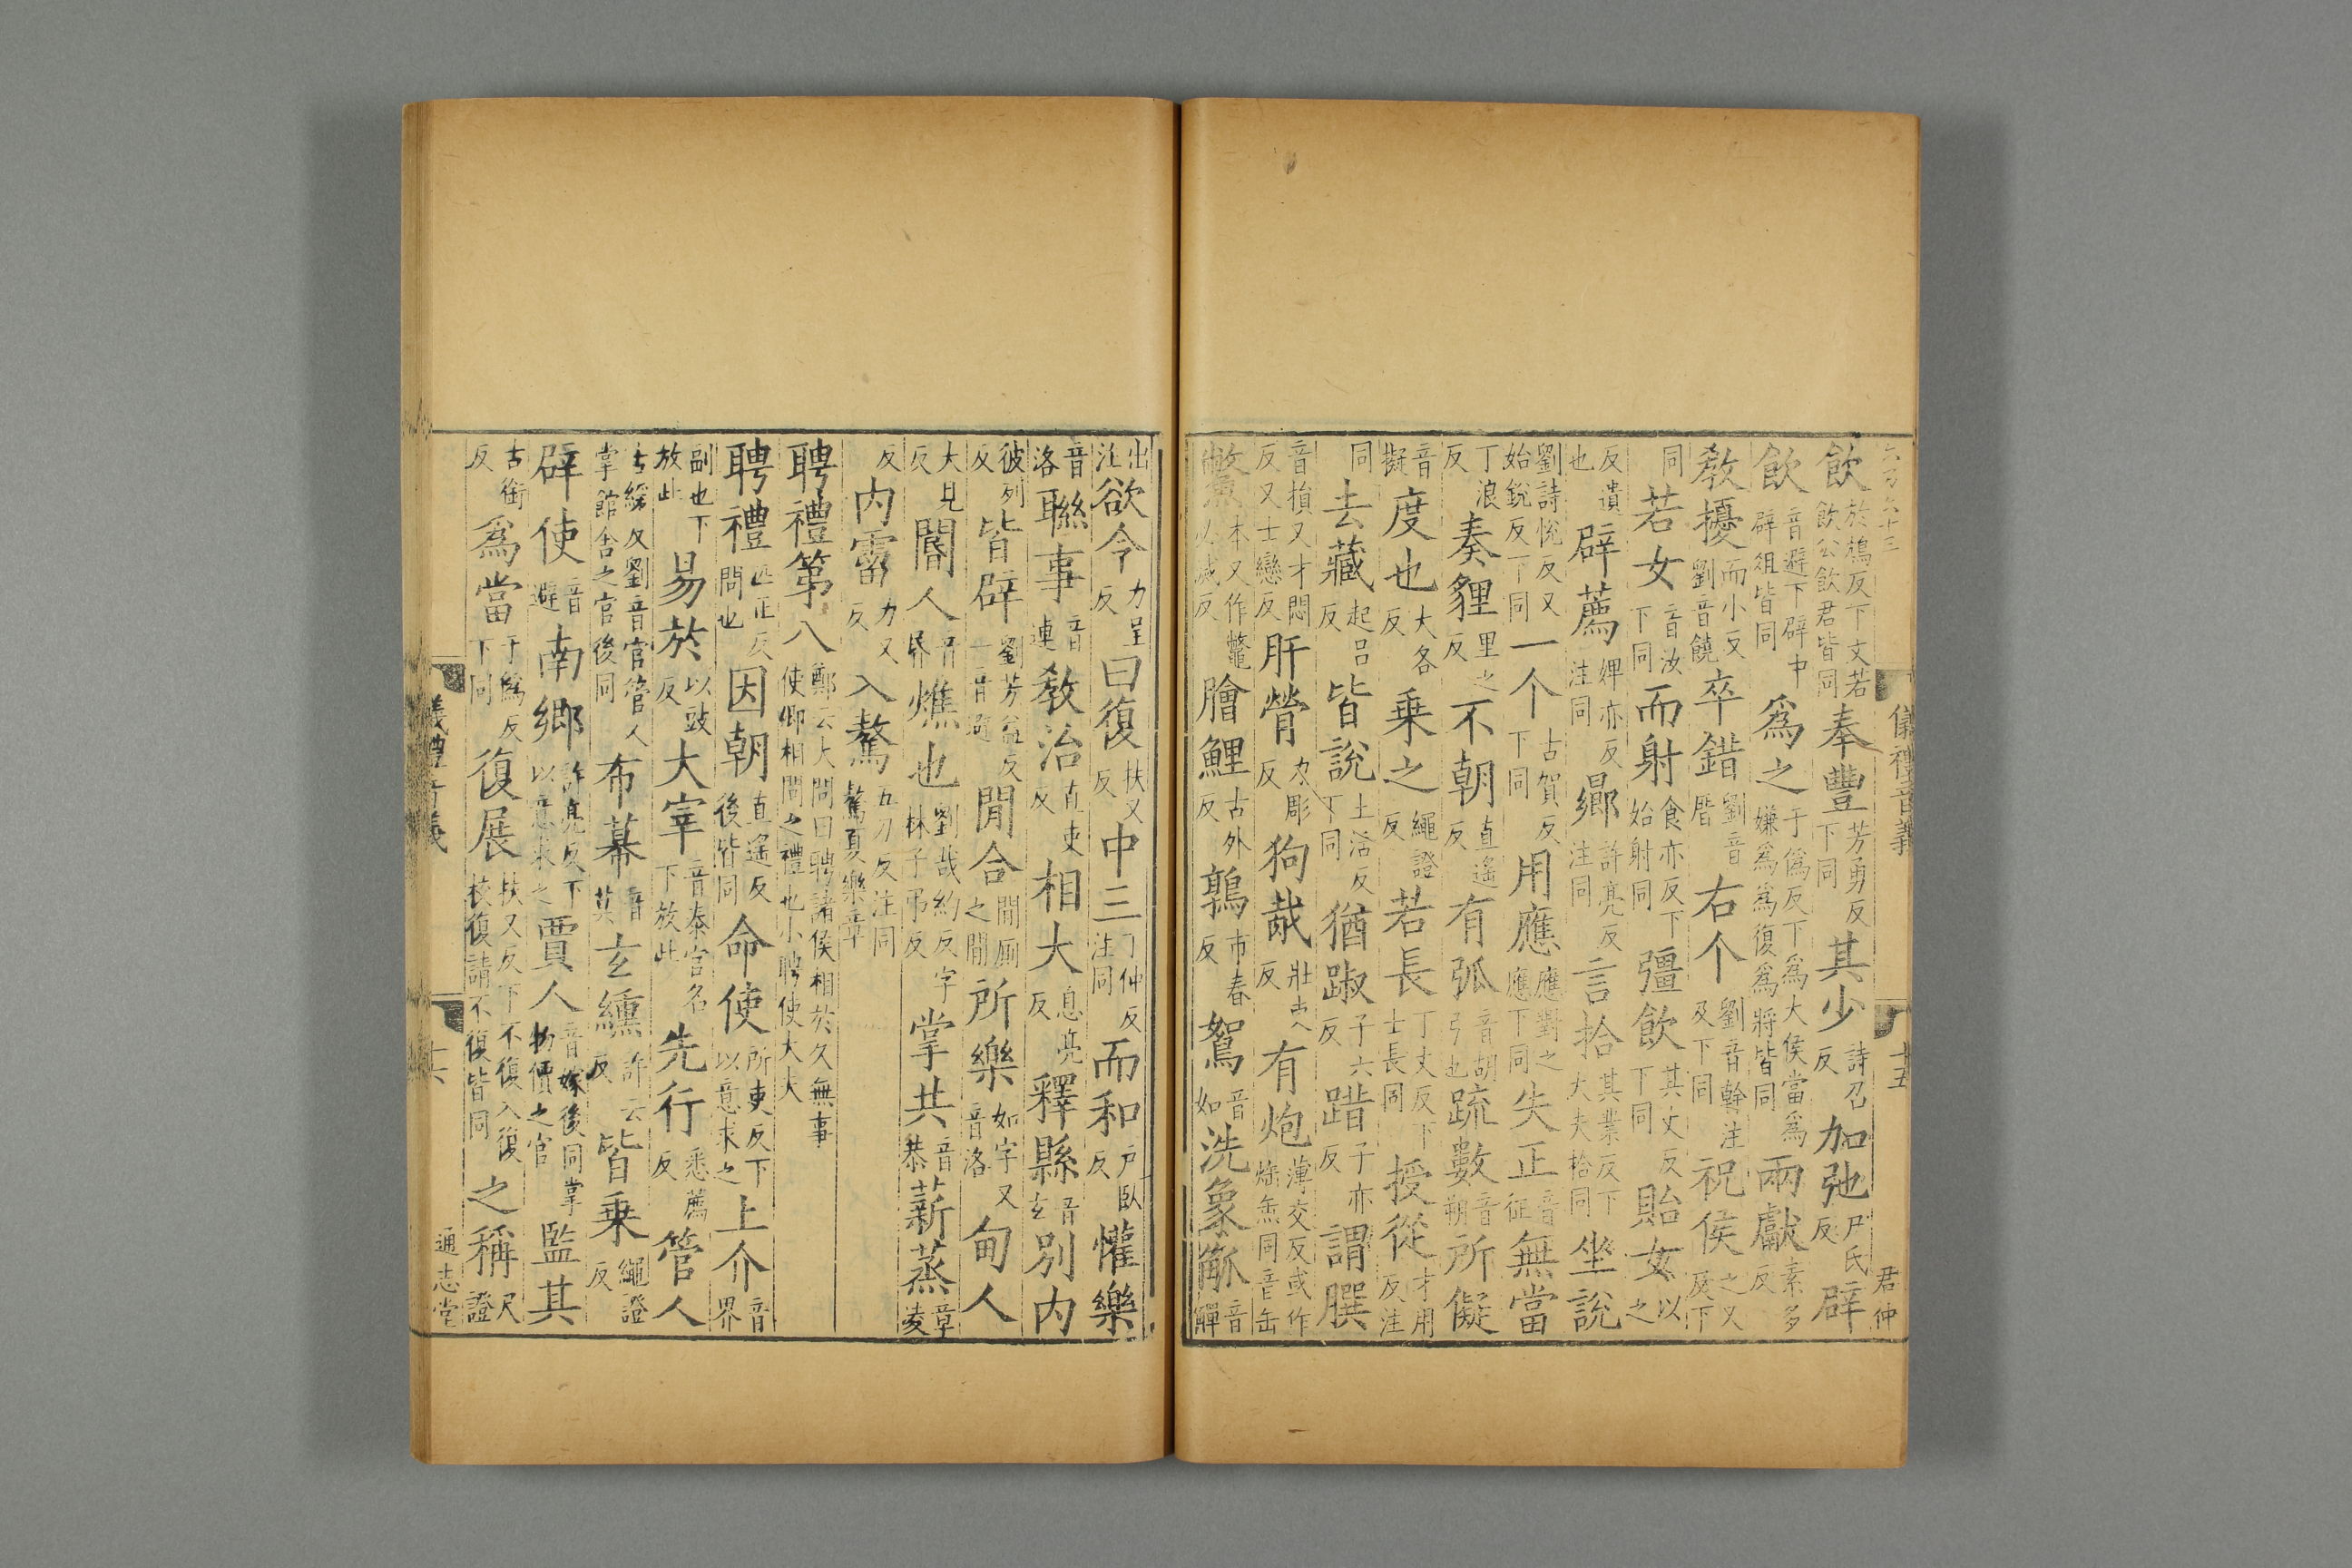 儀禮音義
十五
君仲
飲於鴆反下文若飲公飲君皆同奉豐芳勇反下同其少詩召反加弛尸氏反辟
音避下辟中辟徂皆同飲爲之于僞反下爲大侯當爲嫌爲爲復爲將皆同兩獻素多反
教擾而小反劉音饒卒錯劉音厝右个劉音幹注及下同祝侯之又反下
同若女音汝下同而射食亦反下始射同彊飲其丈反下同貽女以之
反遺也辟薦婢亦反注同鄉許亮反注同言拾其業反下大夫拾同坐說
劉詩悅反又始銳反下同一个古賀反下同用應應對之應下同失正音征無當
丁浪反奏貍里之反不朝直遙反有弧音胡弓也疏數音朔所儗
音擬度也大各反乘之繩證反若長丁丈反下士長同授從才用反注
同去藏起呂反皆說土活反下同猶踧子六反踖子亦反謂膶
音損又才悶反又士戀反肝膋力彫反狗胾壯吏反有炮薄交反或作炰缹同音缶
鷩本又作鼈必滅反膾鯉古外反鶉市春反鴽音如洗象觚音觶
出注欲令力呈反曰復扶又反中三丁仲反注同而和戶臥反懽樂
音洛聮事音連教治直吏反相大息亮反釋縣音玄別内
彼列反皆辟劉芳益反一音避閒合閒厠之閒所樂如字又音洛甸人
大見反閽人音昏燋也劉哉約反字林子弔反掌共音恭薪蒸章凌
反内霤力又反入驁五刀反注同驁夏樂章
聘禮第八鄭云大問曰聘諸侯相於久無事使卿相問之禮也小聘使大夫
聘禮匹正反問也因朝直遙反後皆同命使所吏反下以意求之上介音界
副也下放此易於以豉反大宰音泰官名下放此先行悉薦反管人
古緩反劉音官管人掌館舍之官後同布幕音莫玄纁許云反皆乘繩證反
辟使音避南鄉許亮反下以意求之賈人音嫁後同掌物價之官監其
古銜反爲當于僞反下同復展扶又反下不復入復校復請不復皆同之稱尺證
儀禮音義
十六
通志堂